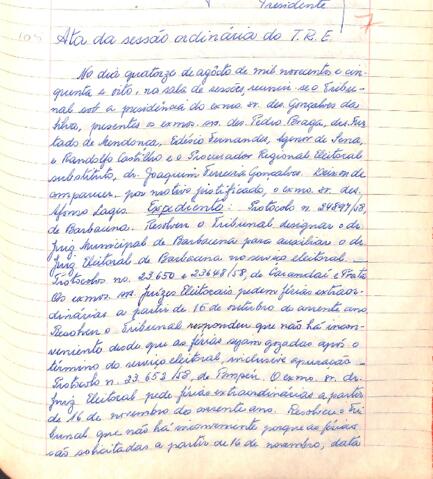 Presidente
7
103
Ata da sessão ordinária do T.R.E.
No dia quatorze de agôsto de mil novecentos e cin-
quenta e oito, na sala de sessões, reuniu-se o Tribu-
nal sob a presidência do exmo. sr. des. Gonçalves da
Silva, presentes os exmos. srs. des. Pedro Braga, des. Fur-
tado de Mendonça, Edésio Fernandes, Agenor de Sena,
e Randolfo Castilho e o Procurador Regional Eleitoral
substituto, dr. Joaquim Ferreira Gonçalves. Deixou de
comparecer, por motivo justificado, o exmo. sr. des.
Afonso Lages. Expediente: Protocolo n. 24897/58,
de Barbacena. Resolveu o Tribunal designar o dr.
Juiz Municipal de Barbacena para auxiliar o dr.
Juiz Eleitoral de Barbacena no serviço eleitoral. —
Protocolos no. 23.650 e 23648/58, de Carandaí e Prata
Os exmos. srs. Juizes Eleitorais pedem férias extraor-
dinárias a partir de 16 de outubro do corrente ano.
Resolveu o Tribunal responder que não há incon-
veniente desde que as férias sejam gozadas após o
término do serviço eleitoral, inclusive apuração —
Protocolo n. 23.653/58, de Pompéu. O exmo. sr. dr.
Juiz Eleitoral pede férias extraordinárias a partir
de 16 de novembro do corrente ano. Resolveu o Tri-
bunal que não há inconveniente porque as férias
são solicitadas a partir de 16 de novembro, data